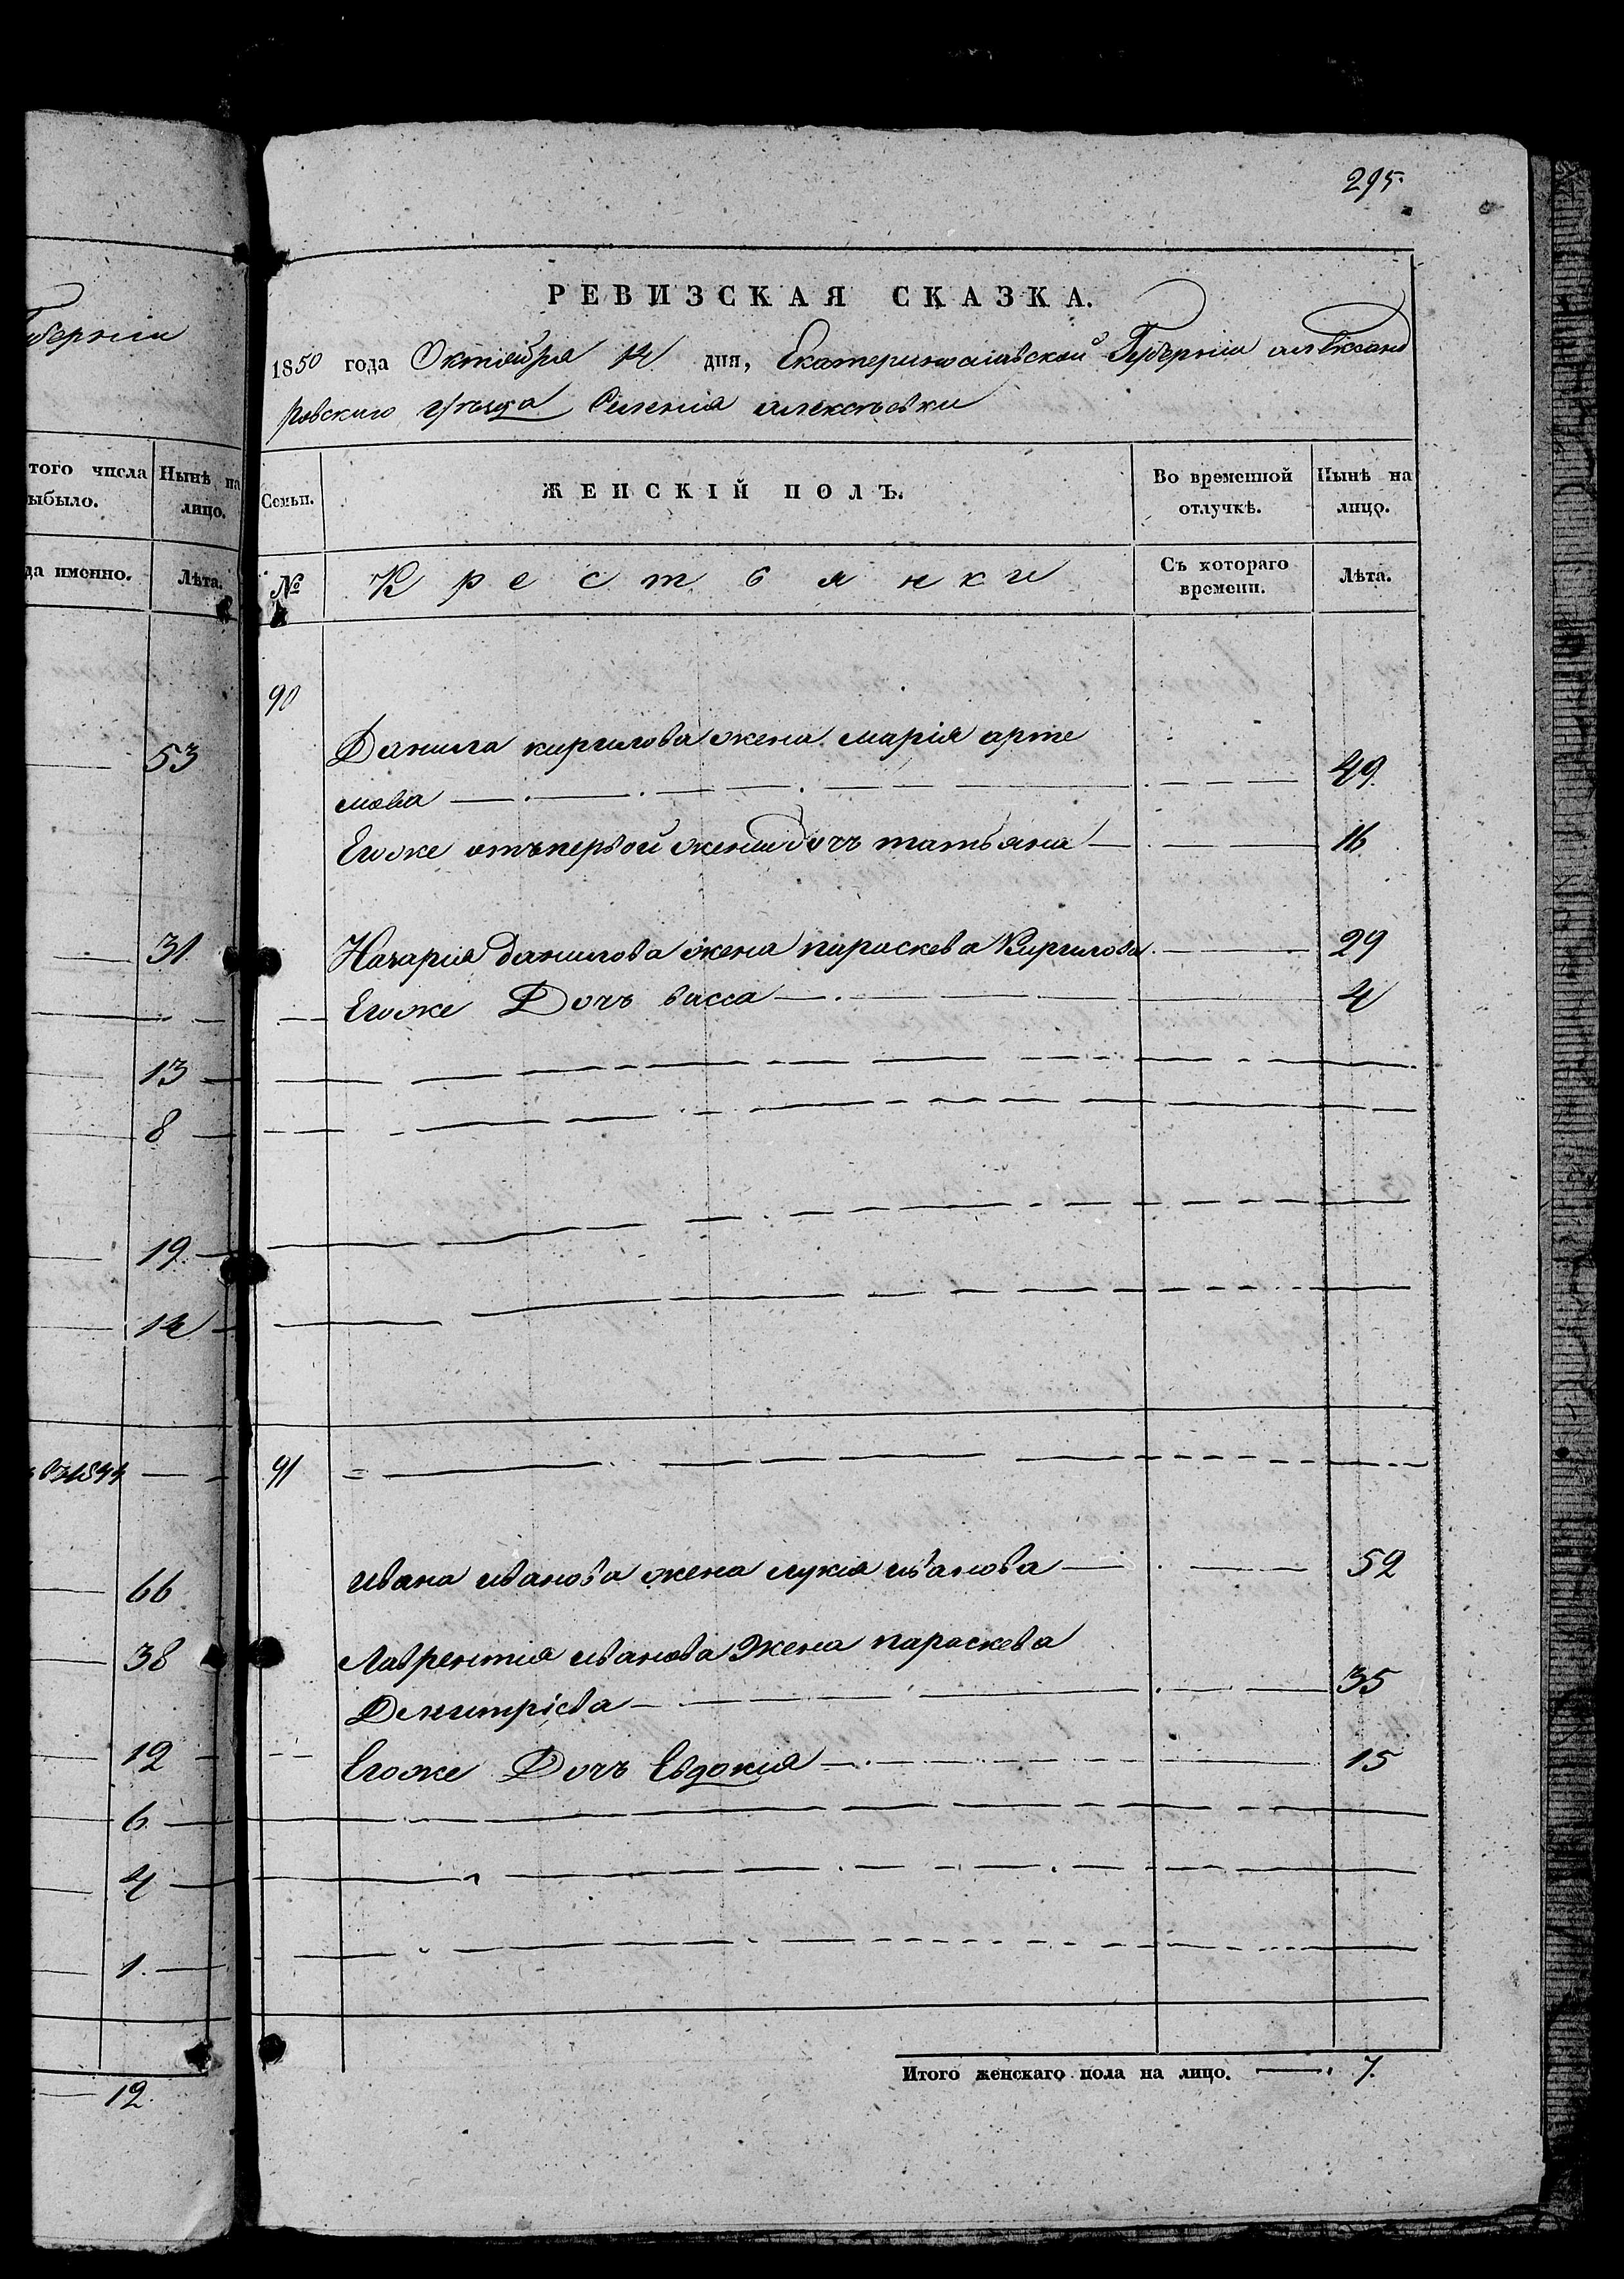 губерніи
того числа Нынѣ на
ыбыло. лицо.
да именно. Лѣта.
53
31
13
8
19
14
66
38
12
6
4
1.
12.
295.
РЕВИЗСКАЯ СКАЗКА.
1850 года Октября 14 дня, Екатеринославской Губерніи александ
ровскаго уезда Селенія алексѣевки
Семьи. ЖЕНСКІЙ ПОЛЪ. Во временной Нынѣ на
отлучкѣ. лицо.
№ Крестьянки Съ котораго Лѣта.
времени.
90
Данила кирилова жена марія арте
мова 49.
Егоже отъ первой жены дочь татьяна 16
Назария данилова жена параскева Кирилова 29
Егоже Дочь васса 4
91
ивана иванова жена лукия иванова 52
Лаврентия иванова Жена параскева
Демитріева 35
Егоже Дочь Евдокия 15
Итого женскаго пола на лицо. 7.